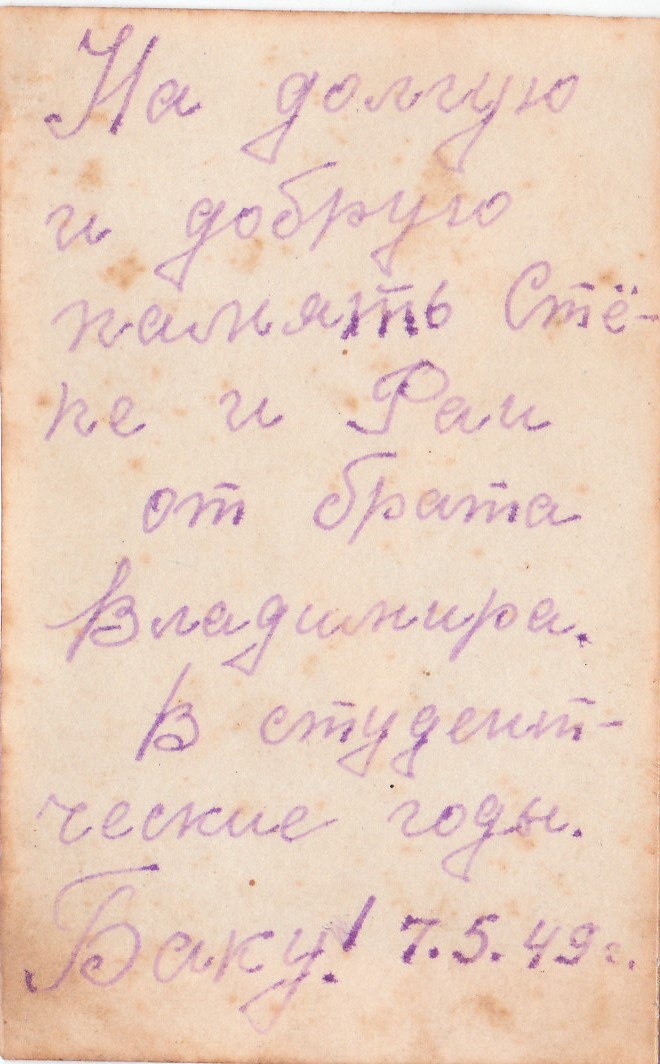 На долгую
и добрую
память Стё-
пе и Раи
от брата
Владимира.
В студент-
ческие годы.
Баку! 7.5.49г.